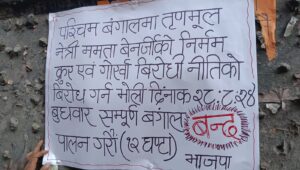 पश्चिम बंगालमा तृणमूल
नेत्री ममता बेनर्जीको निर्मम
क्रुर एवं गोर्खा बिरोधी नीतिको
बिरोध गर्न भोली दिनाक २८.८.२४
बुधवार सम्पूर्ण बंगाल बन्द
पालन गरौं (१२ घण्टा)
भाजपा